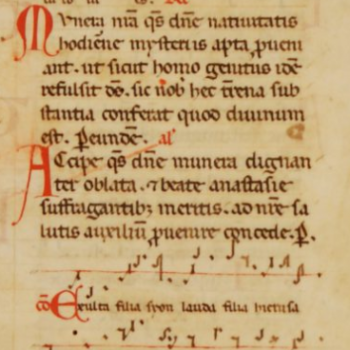 Munera nr̄a q̄s dn̄e nativitatis
hodierne mysteriis apta proueni
ant. ut sicut homo genitus idē
refulsit dē. sic nob hec t̄rena sub
stantia conferat quod diuinum
est. P eundē. al'
Accipe q̄s dn̄e munera dignan
ter oblata. ⁊ beate anastasie
suffragantibꝫ meritis. ad nr̄e sa
lutis auxiliū ꝓuenire concede. P.
cō Exulta filia syon lauda filia hierusa